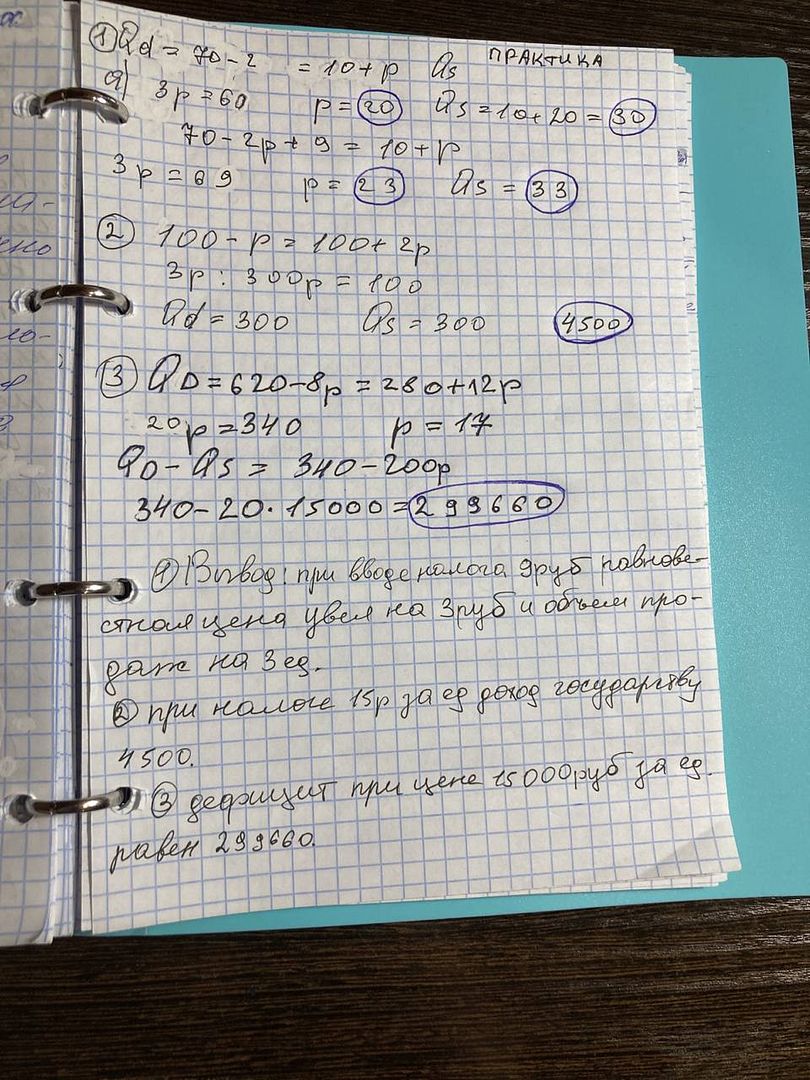 ПРАКТИКА
① Qd = 70 - 2 = 10 + p Qs
а) 3p = 60 p = 20 Qs = 10 + 20 = 30
70 - 2p + 9 = 10 + p
3p = 69 p = 23 Qs = 33
② 100 - p = 100 + 2p
3p : 300p = 100
Qd = 300 Qs = 300 4500
③ QD = 620 - 8p = 280 + 12p
20p = 340 p = 17
QD - QS = 340 - 200p
340 - 20 · 15000 = 299660
① Вывод: при вводе налога 9руб равнове-
стная цена увел на 3руб и объем про-
даж на 3 ед.
② при налоге 15р за ед доход государству
4500.
③ дефицит при цене 15000руб за ед.
равен 299660.